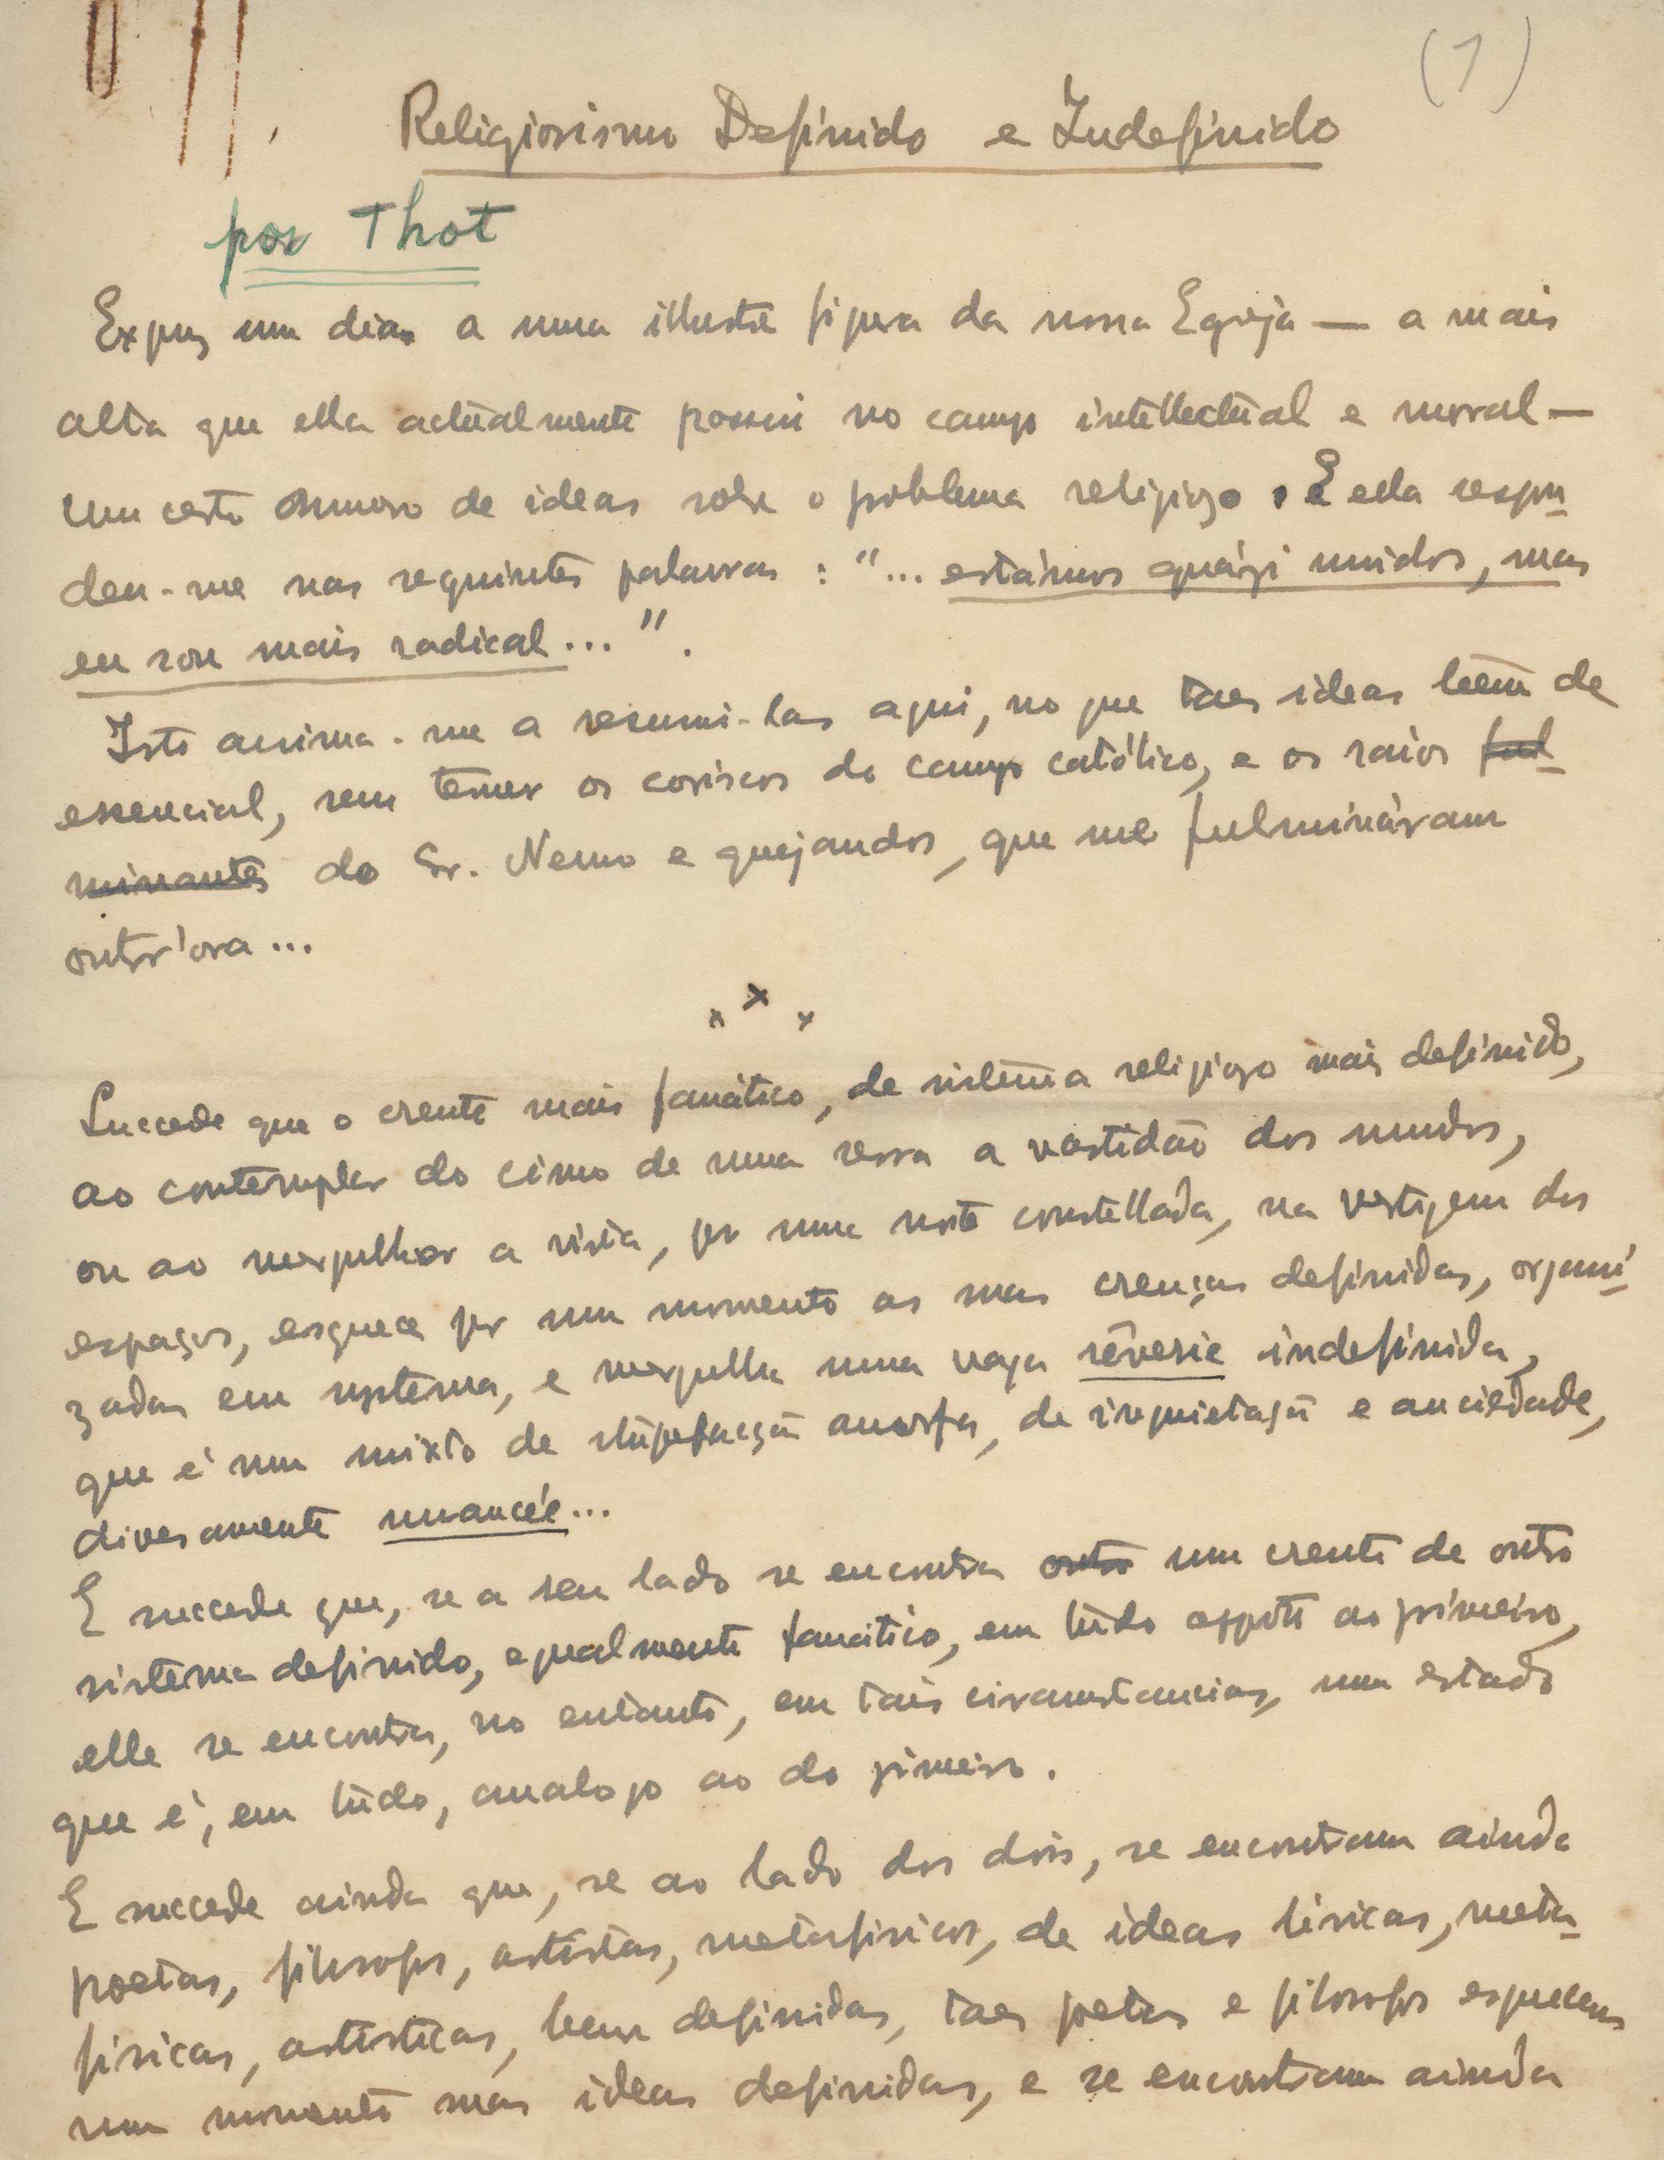 (1)
Religiosismo Definido e Indefinido
por Thot
Expuz um dia a uma illustre figura da nossa Egreja — a mais
alta que ella actualmente possui no campo intellectual e moral —
um certo numero de ideas sobre o problema religiozo. E ella respon-
deu-me nas seguintes palavras: "... estámos quázi unidos, mas
eu sou mais radical...".
Isto anima-me a resumi-las aqui, no que taes ideas teem de
essencial, sem temer os coriscos do campo católico, e os raios ful-
minantes do Sr. Nemo e quejandos, que me fulmináram
outr'ora...
Succede que o crente mais fanático, de sistema religiozo mais definido,
ao contemplar do cimo de uma serra a vastidão dos mundos,
ou ao mergulhar a vista, por uma noite constellada, na vertigem dos
espaços, esquece por um momento as suas crenças definidas, organi-
zadas em systema, e mergulha numa vaga rêverie indefinida,
que é um mixto de stupefacção amorfa, de inquietação e anciedade,
diversamente nuancée...
E succede que, se a seu lado se encontra outro um crente de outro
sistema definido, egualmente fanático, em tudo opposto ao primeiro,
elle se encontra, no entanto, em tais circumstancias, num estado
que é, em tudo, analogo ao do primeiro.
E succede ainda que, se ao lado dos dois, se encontram ainda
poetas, filosofos, artistas, metafisicos, de ideas liricas, meta-
fisicas, artisticas, bem definidas, taes poetas e filosofos esquecem
um momento suas ideas definidas, e se encontram ainda